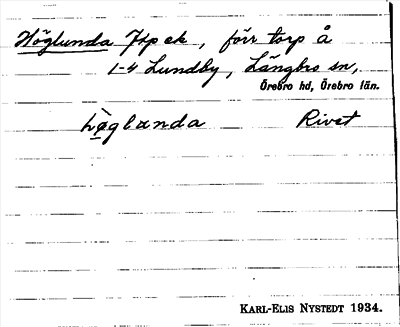 Höglunda Jfp ek, förr torp å
1-4 Lundby, Längbro sn,
Örebro hd, Örebro län.
hö̀glanda Rivet
KARL-ELIS NYSTEDT 1934.